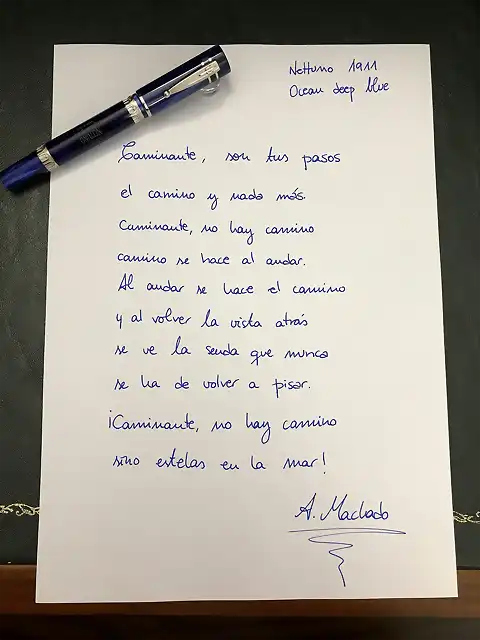 Nettuno 1911
Ocean deep blue
Caminante, son tus pasos
el camino y nada más.
Caminante, no hay camino
camino se hace al andar.
Al andar se hace el camino
y al volver la vista atrás
se ve la senda que nunca
se ha de volver a pisar.
¡Caminante, no hay camino
sino estelas en la mar!
A. Machado